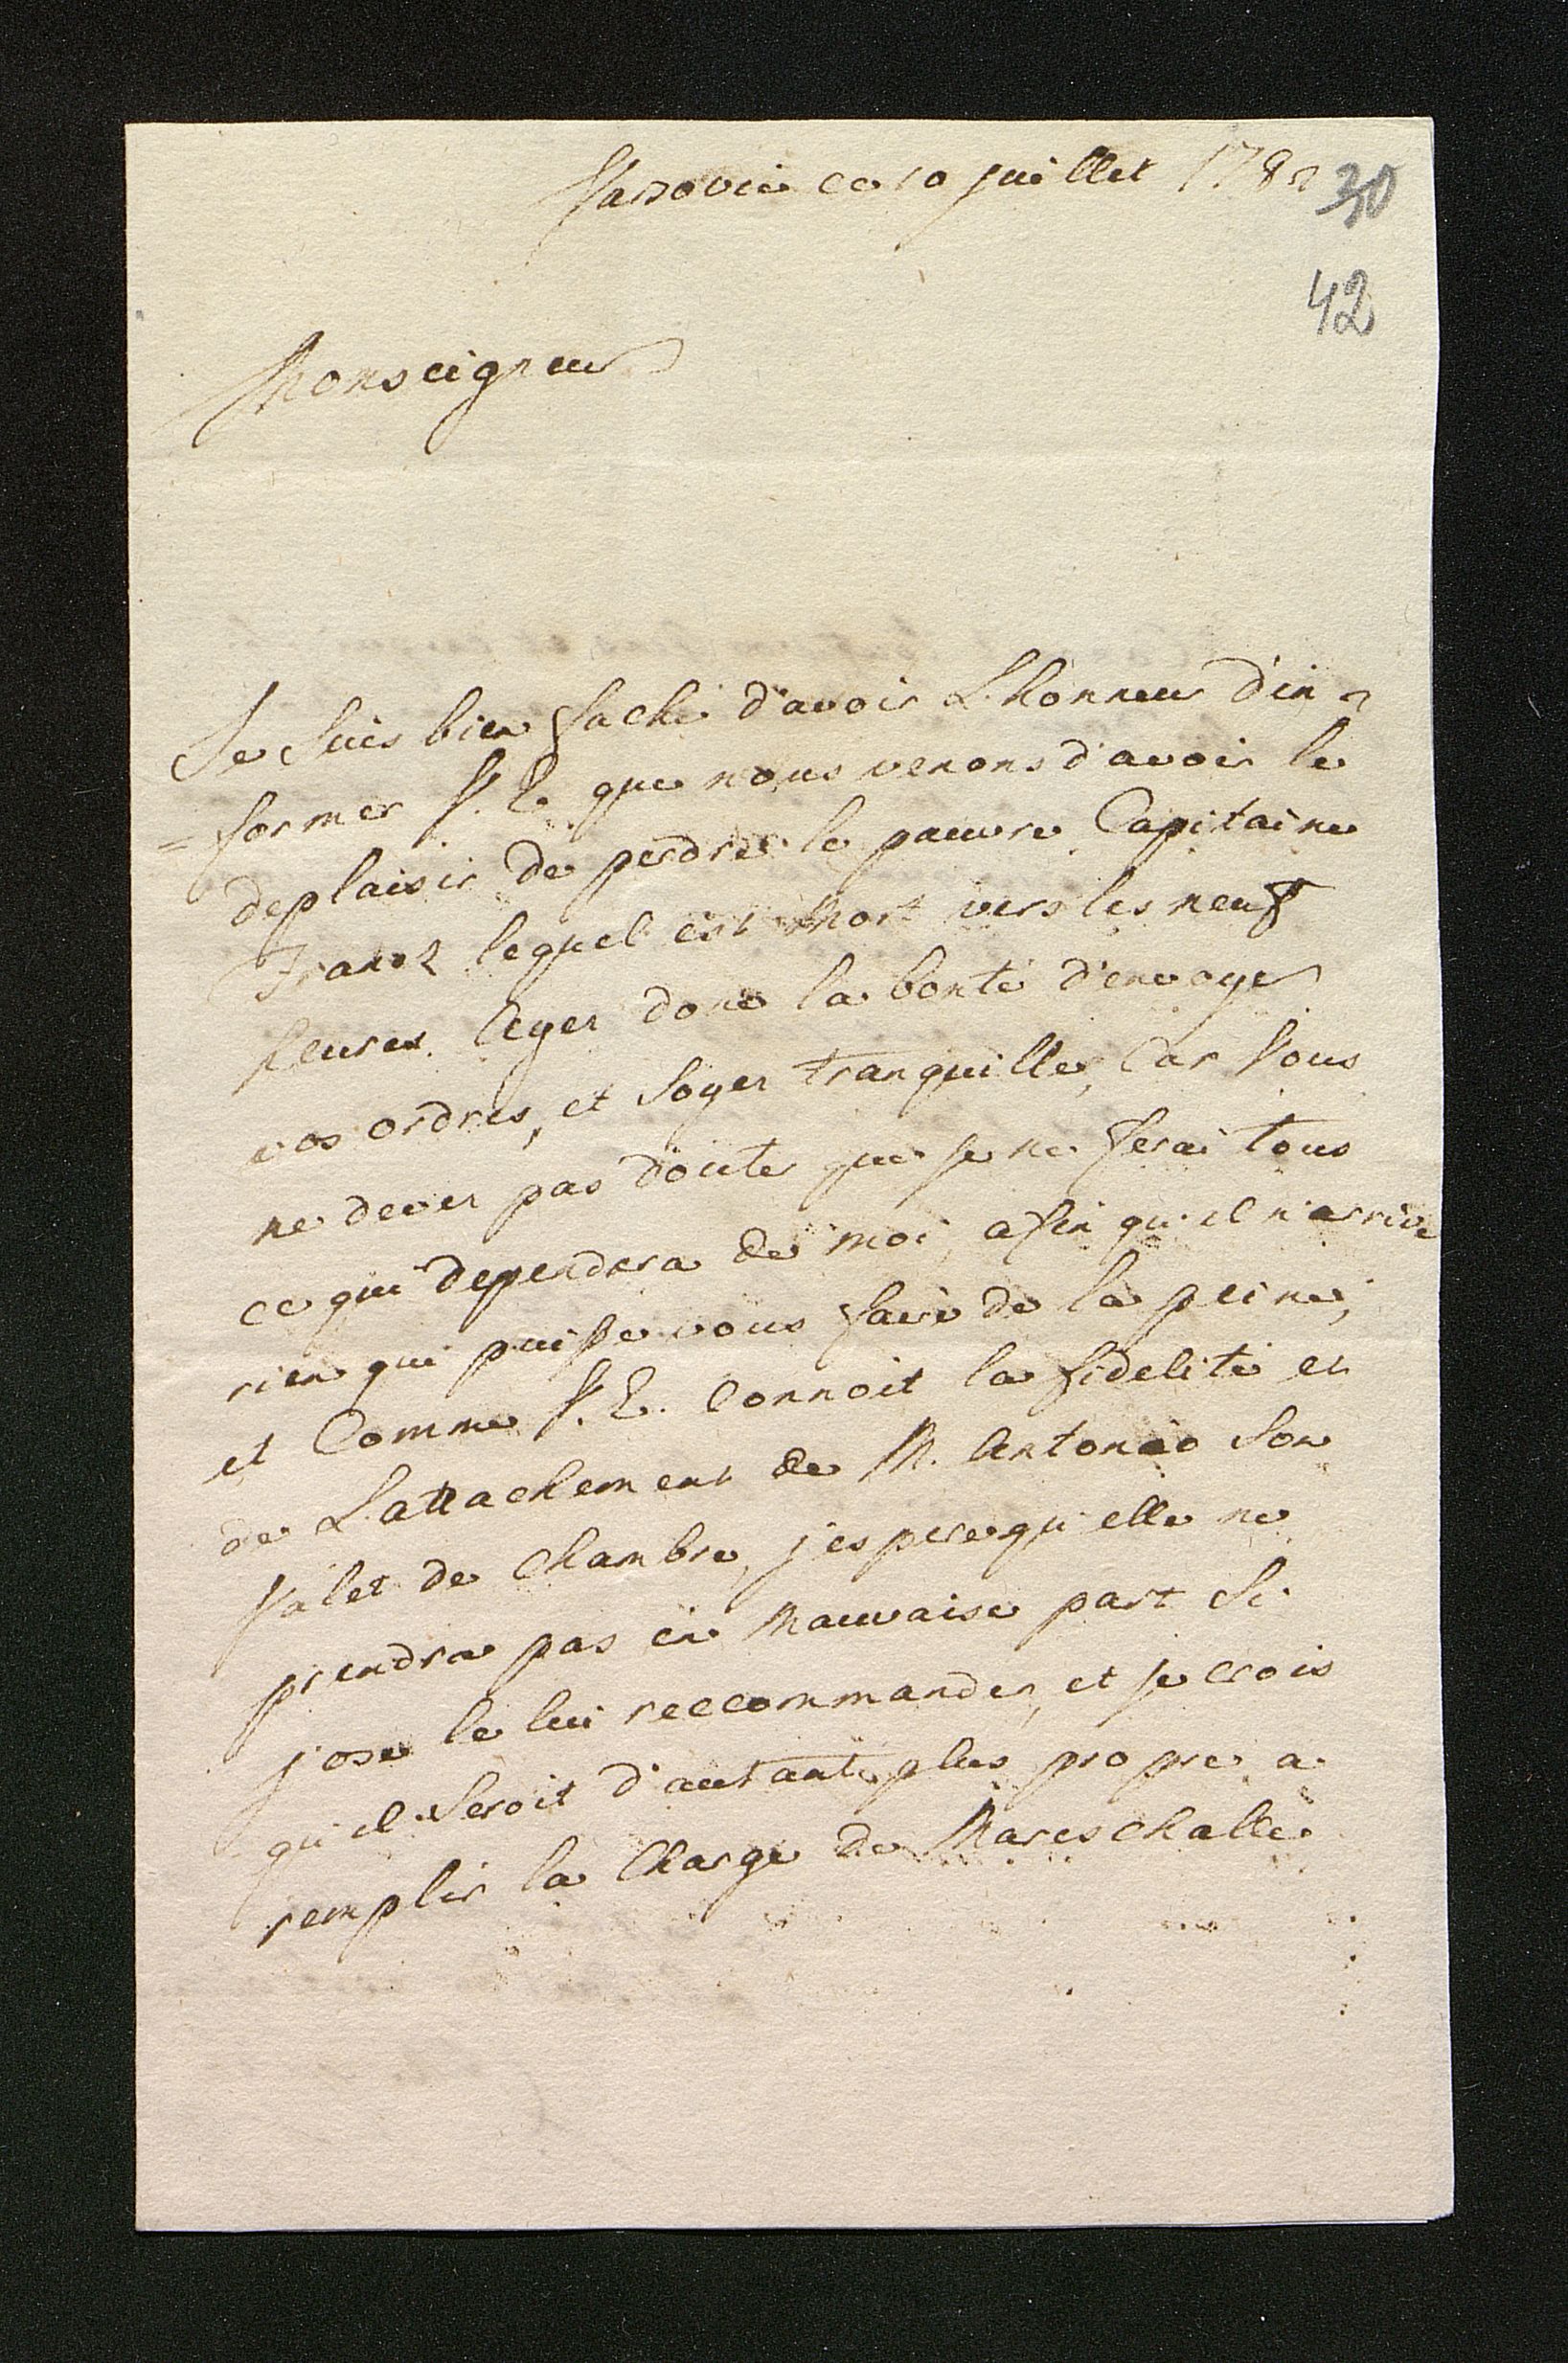 Varsovie ce 10 juillet 1782
30
42
Monseigneur
Je suis bien faché d'avoir L'honneur d'in=
=former V. E. que nous venons d'avoir le
deplaisir de perdre le pauvre Capitaine
Franz lequel est Mort vers les neuf
heures. Ayez donc la bonté d'envoyer
vos ordres, et Soyez tranquille, Car Vous
ne devez pas douter que je ne ferai tous
ce qui dependera de moi, afin qu'il n'arrive
rien qui puisse vous faire de la peine;
et Comme V. E. Connoit la fidelité et
de L'attachement de M. Antonio Son
Valet de Chambre, j'espere qu'elle ne
prendra pas en Mauvaise part Si
j'ose le lui reccommander, et je crois
qu'il Seroit d'autant plus propre a
remplir la Charge de Mareschalle